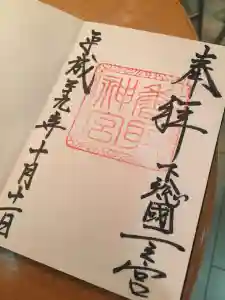 奉拝
下総國一之宮
香取神宮
平成二十九年十月十一日